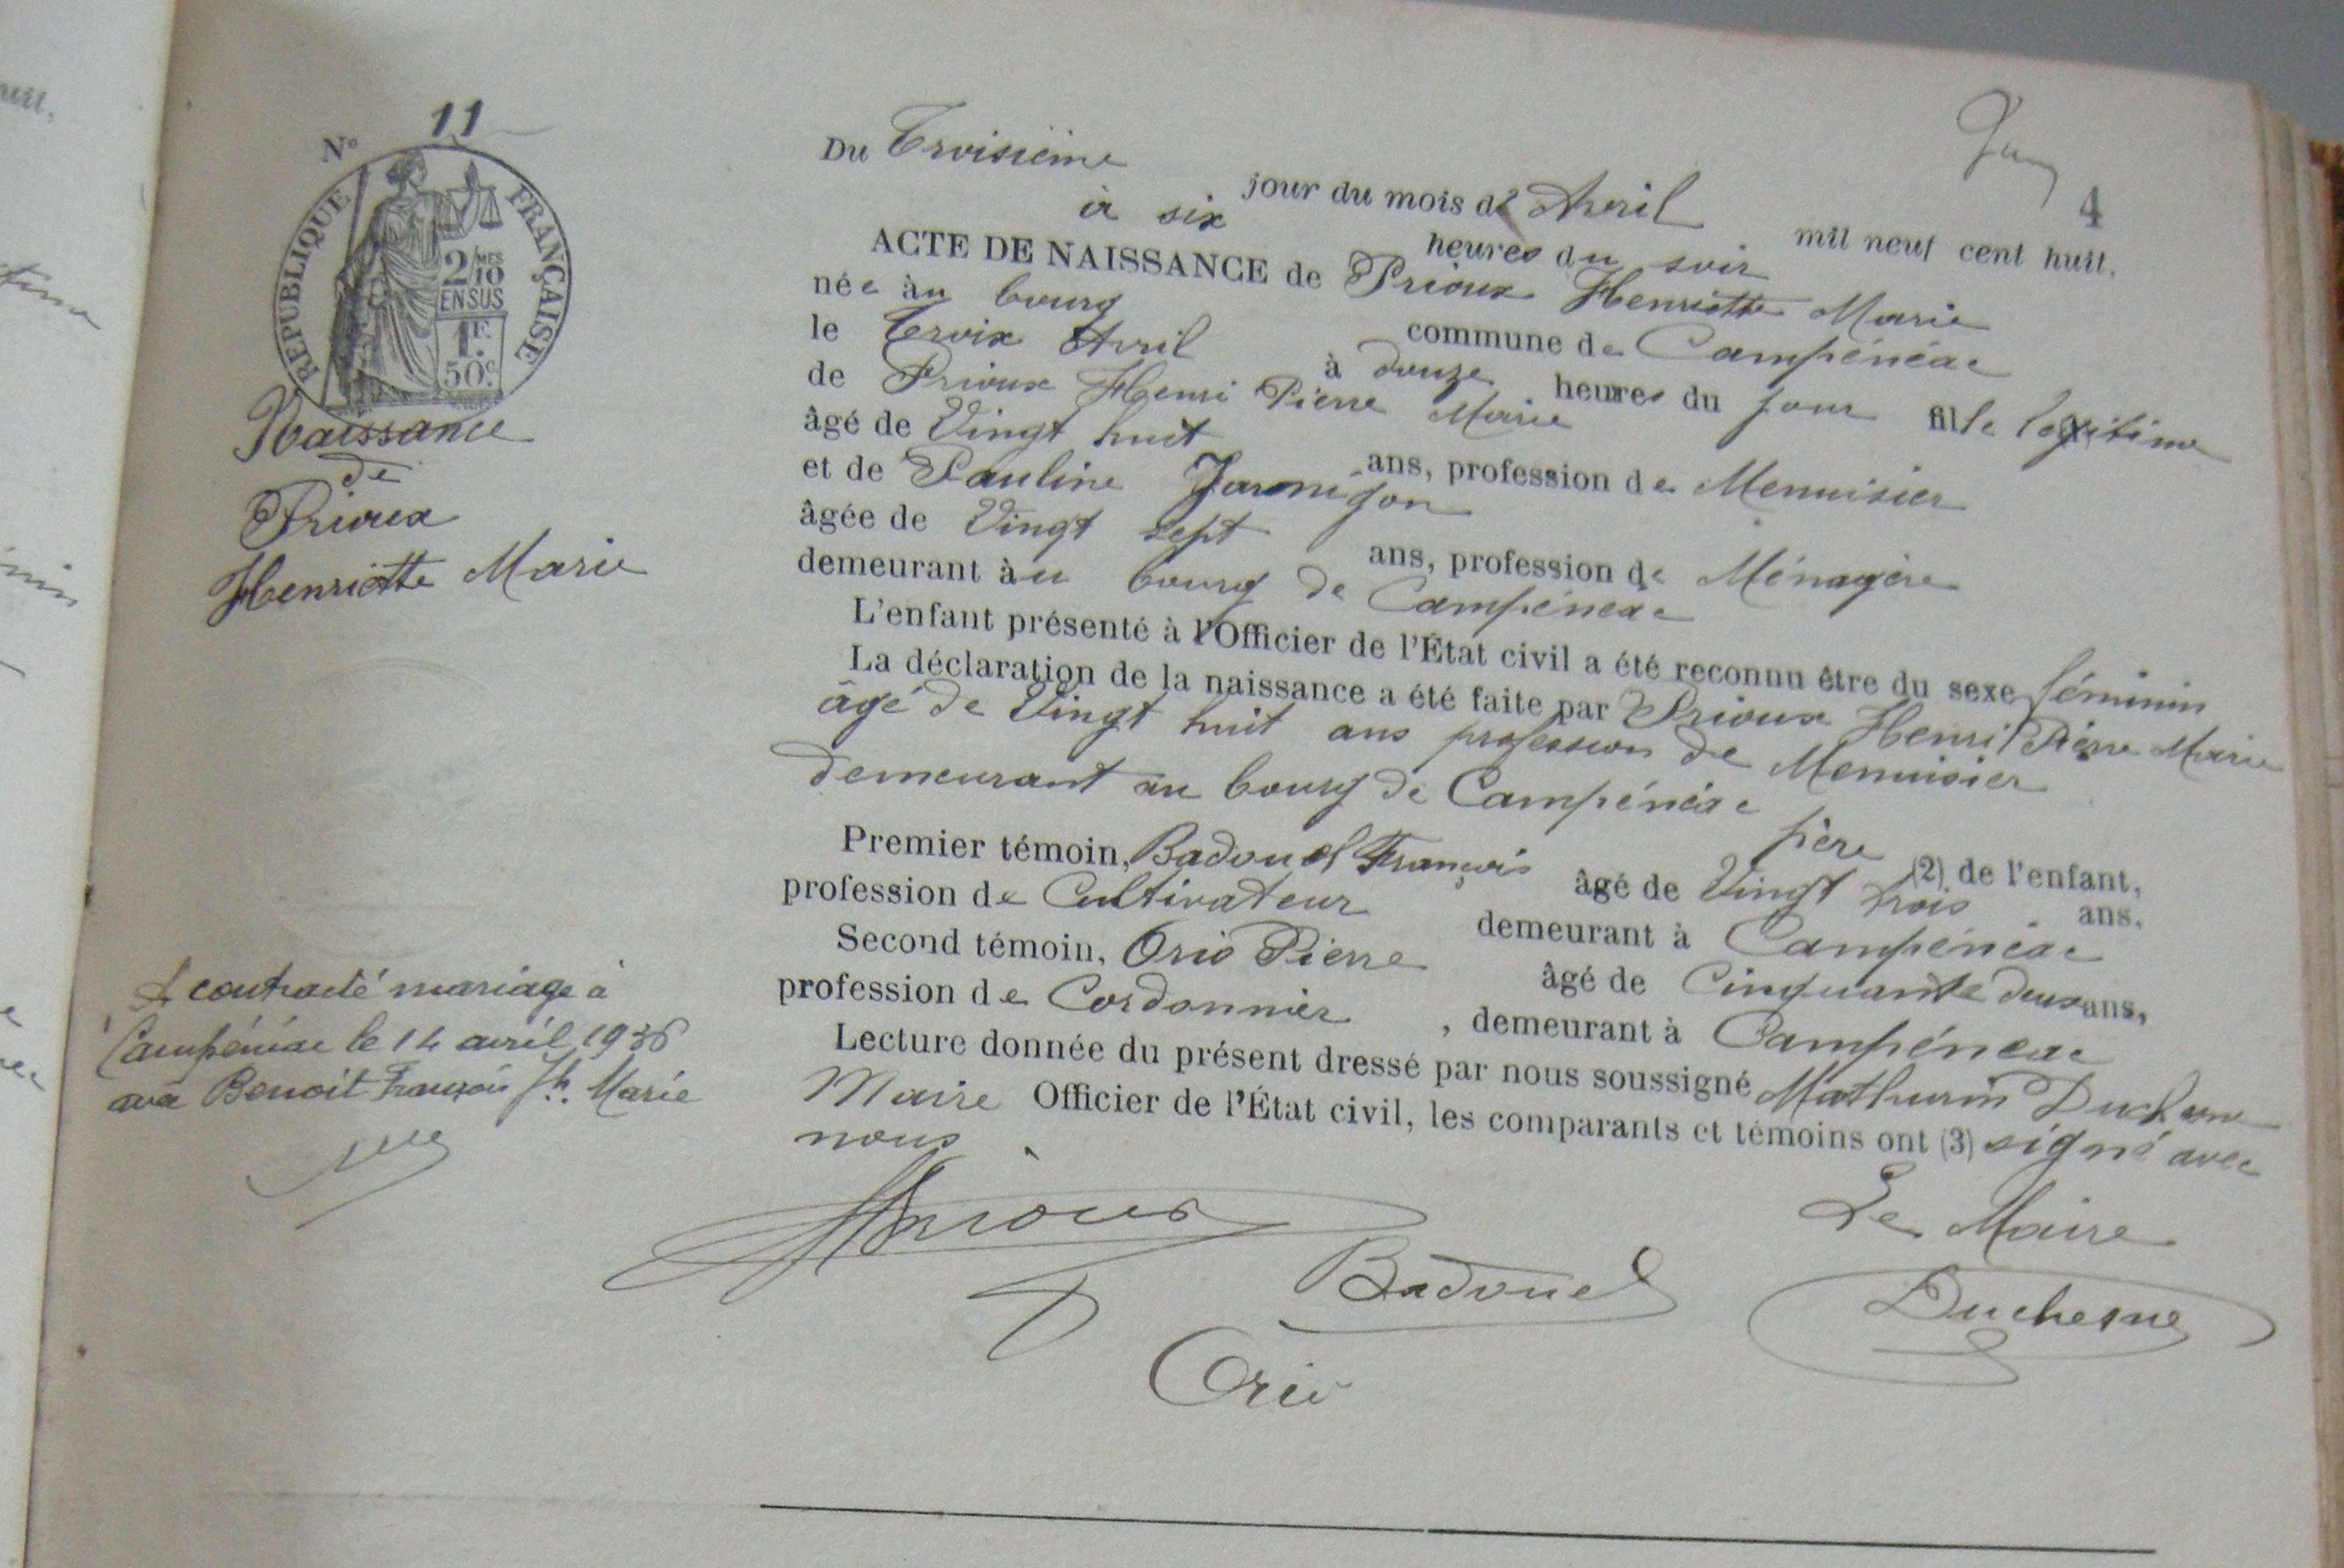 Nº 11
RÉPUBLIQUE FRANÇAISE
2/10 MES
EN SUS
1F.
50c.
Naissance
de
Prioux
Henriette Marie
A contracté mariage à
Campénéac le 14 avril 1936
avec Benoit François Jh. Marie
4
Du Troisième jour du mois de Avril mil neuf cent huit.
à six heures du soir
ACTE DE NAISSANCE de Prioux Henriette Marie
née àu bourg commune de Campénéac
le Trois Avril à douze heures du jour fille légitime
de Prioux Henri Pierre Marie
âgé de Vingt huit ans, profession de Menuisier
et de Pauline Jarnigon
âgée de Vingt sept ans, profession de Ménagère
demeurant àu bourg de Campénéac
L'enfant présenté à l'Officier de l'État civil a été reconnu être du sexe féminin
La déclaration de la naissance a été faite par Prioux Henri Pierre Marie
âgé de Vingt huit ans profession de Menuisier
demeurant au bourg de Campénéac
père (2) de l'enfant,
Premier témoin, Badouel François âgé de Vingt trois ans.
profession de Cultivateur demeurant à Campénéac
Second témoin, Orio Pierre âgé de Cinquante deux ans,
profession de Cordonnier, demeurant à Campénéac
Lecture donnée du présent dressé par nous soussigné Mathurin Duchesne
Maire Officier de l'État civil, les comparants et témoins ont (3) signé avec
nous
Le Maire
HPrioux
Badouel
Duchesne
Orio